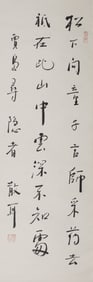 松下问童子言師采药去
祇在此山中雲深不知處
賈島尋隐者
散耳